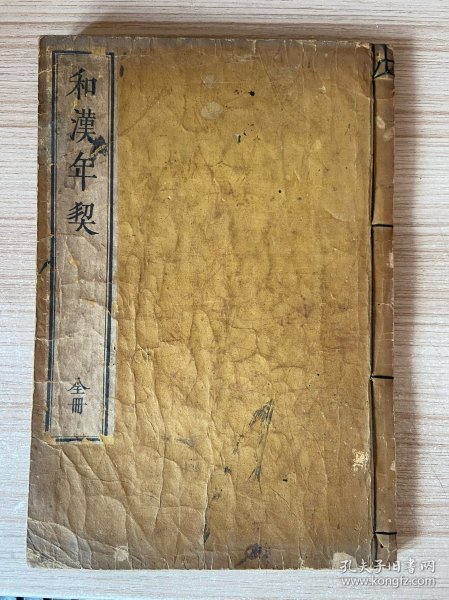 和漢年契
全冊
孔夫子旧书网
www.kongfz.com